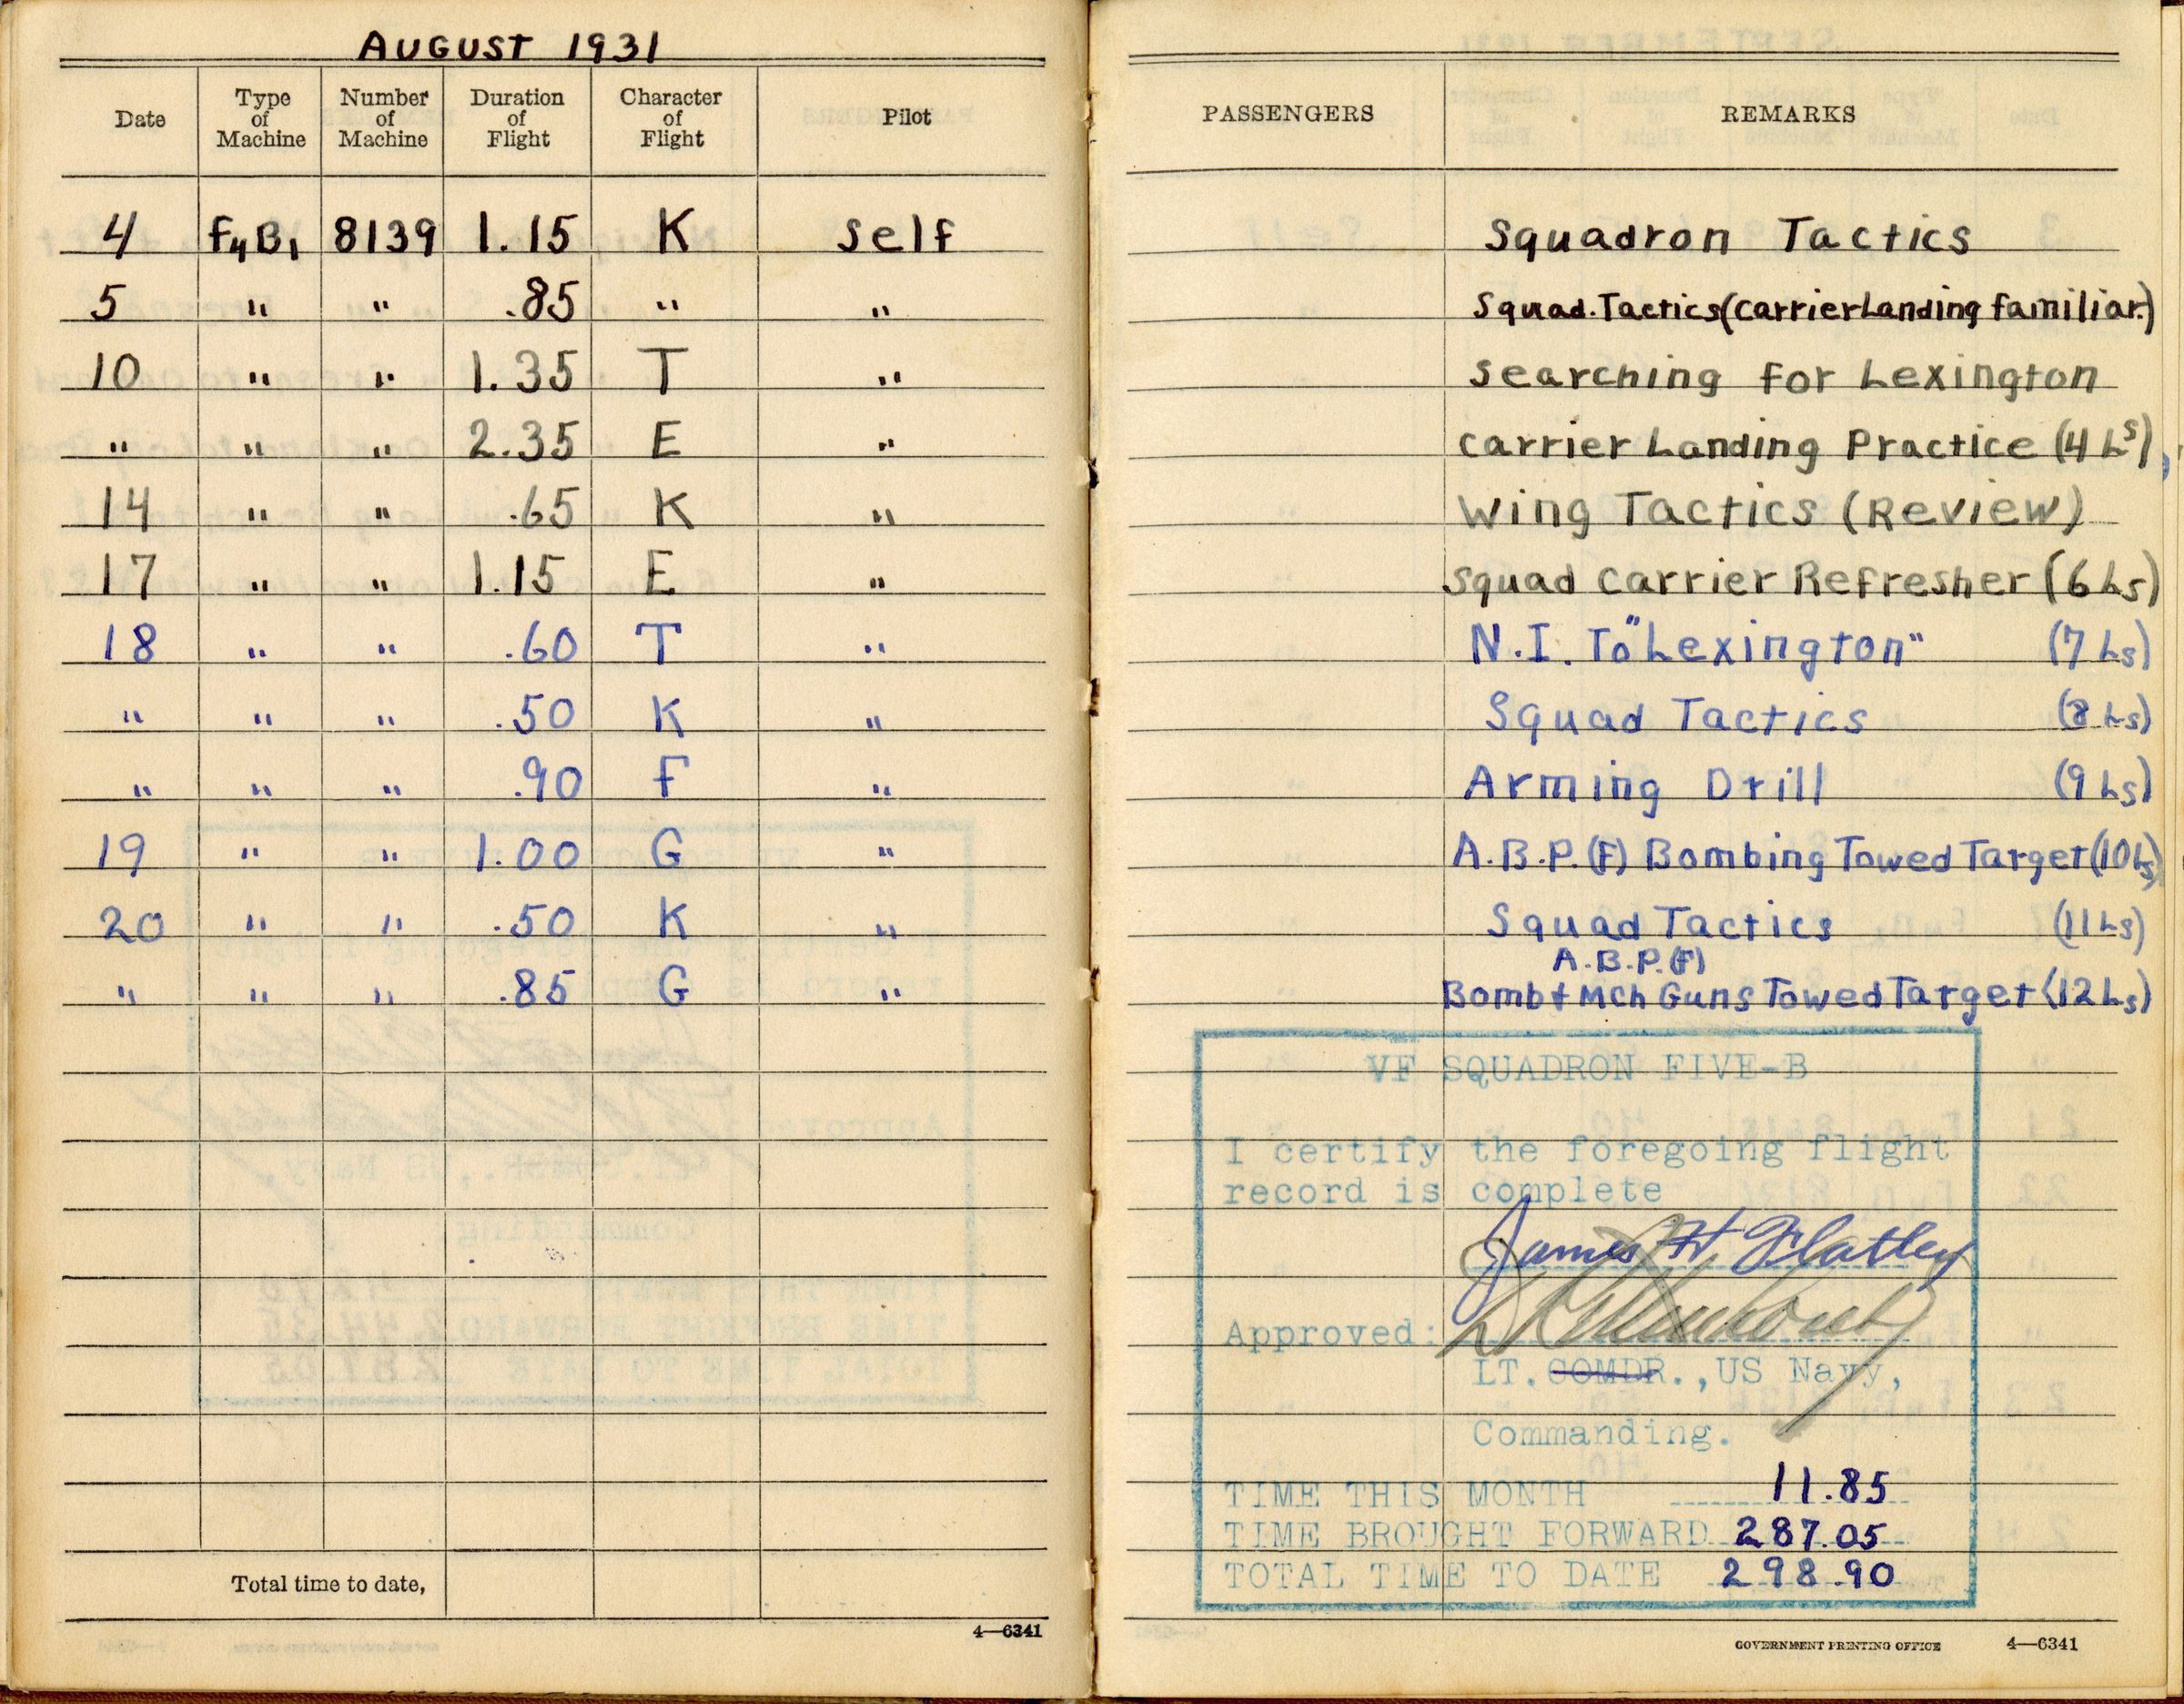 AUGUST 1931
Date Type of Machine Number of Machine Duration of Flight Character of Flight Pilot PASSENGERS REMARKS
4 F4B1 8139 1.15 K Self Squadron Tactics
5 " " .85 " " Squad. Tactics (Carrier Landing familiar.)
10 " " 1.35 T " Searching for Lexington
" " " 2.35 E " Carrier Landing Practice (4 Ls)
14 " " .65 K " Wing Tactics (Review)
17 " " 1.15 E " Squad Carrier Refresher (6 Ls)
18 " " .60 T " N.I. To "Lexington" (7 Ls)
" " " .50 K " Squad Tactics (8 Ls)
" " " .90 F " Arming Drill (9 Ls)
19 " " 1.00 G " A.B.P.(F) Bombing Towed Target (10 Ls)
20 " " .50 K " Squad Tactics (11 Ls)
A.B.P.(F)
" " " .85 G " Bomb + Mch Guns Towed Target (12 Ls)
VF SQUADRON FIVE-B
I certify the foregoing flight
record is complete
James H. Flatley
Approved:
LT. COMDR., US Navy,
Commanding.
TIME THIS MONTH 11.85
TIME BROUGHT FORWARD 287.05
TOTAL TIME TO DATE 298.90
Total time to date,
4—6341
GOVERNMENT PRINTING OFFICE 4—6341